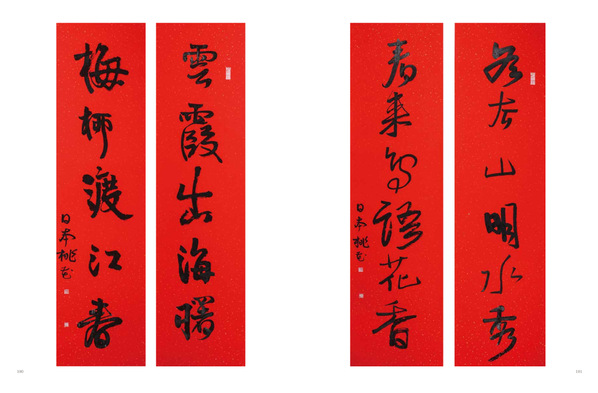 雲霞出海曙
梅柳渡江春
日本桃花
冬去山明水秀
春来鸟語花香
日本桃花